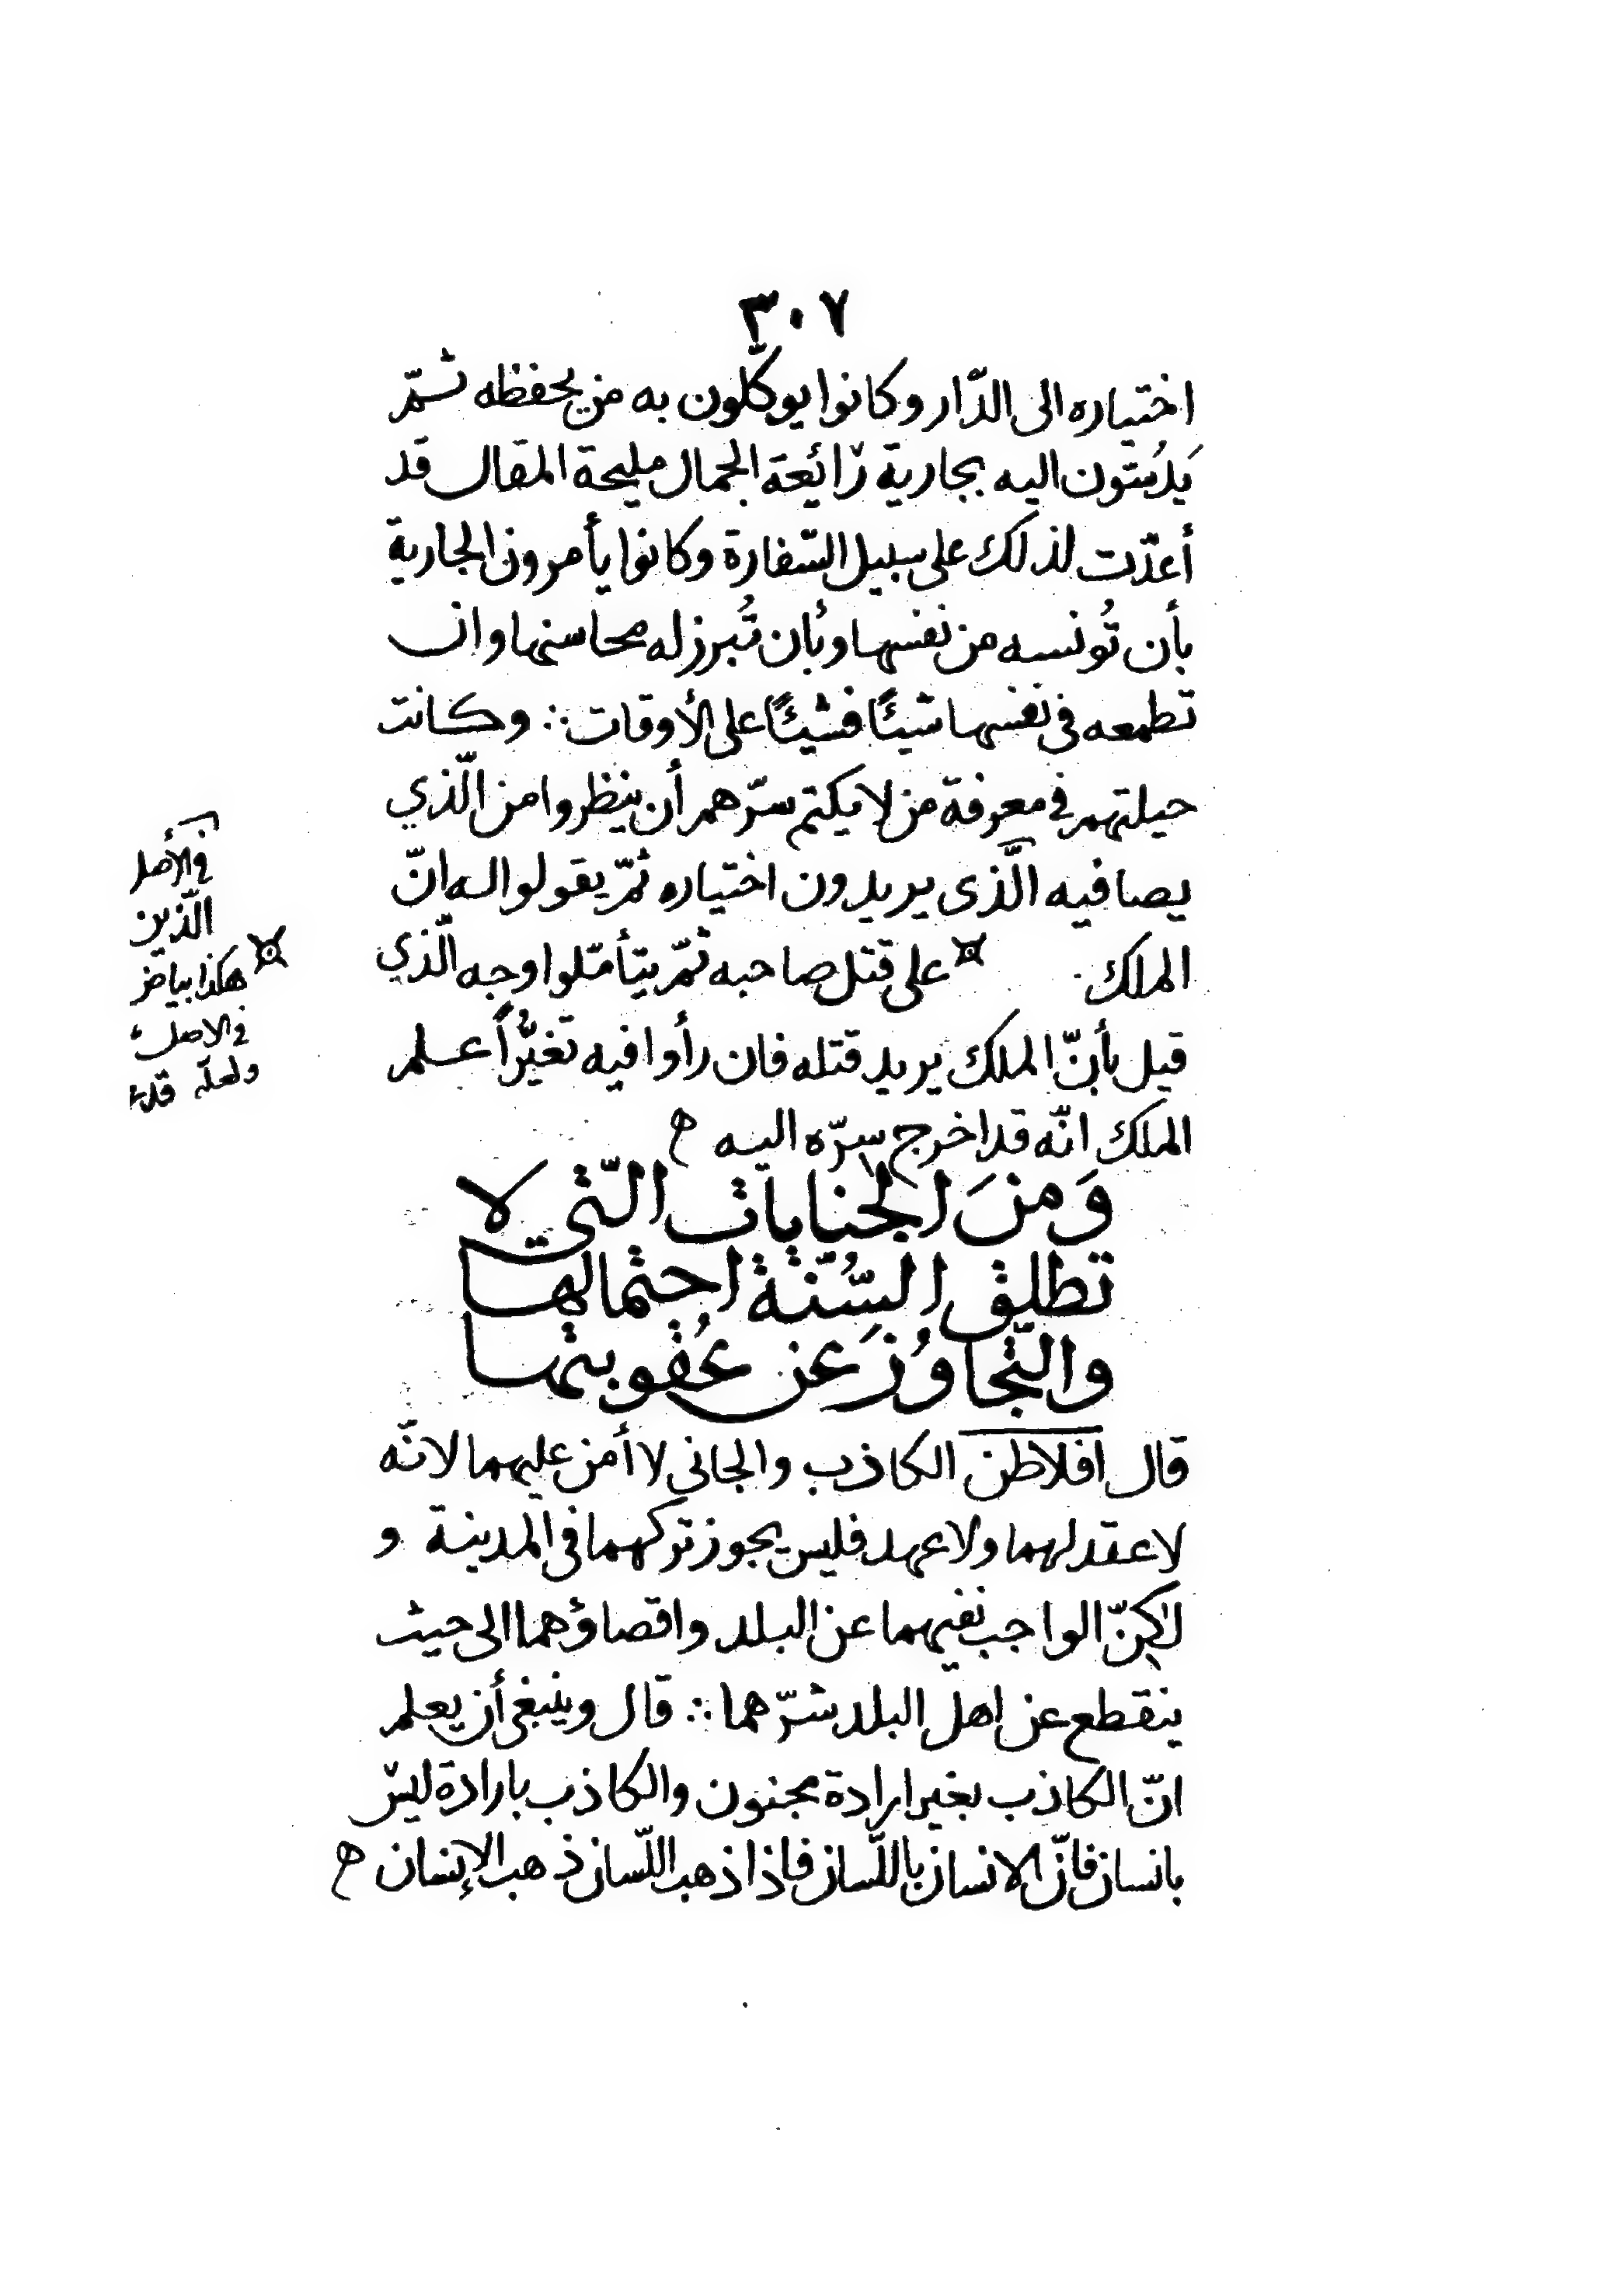 ٣٠٧
اختياره الى الدّار وكانوا يوكّلون به من يحفظه ثمّ
يَدُسّون اليه بجارية رّائعة الجمال مليحة المقال قد
أعدّت لذلك على سبيل السّفارة وكانوا يأمرون الجارية
بأن تُونسه من نفسها وبأن تُبرز له محاسنها وان
تطمعه فى نفسها شيئًا فشيئًا على الأوقات ∴ وكانت
حيلتهم في معرفة من لا يكتم سرّهم أن ينظروا من الّذي
يصافيه الّذى يريدون اختياره ثمّ يقولوا له انّ
الملك على قتل صاحبه ثمّ يتأمّلوا وجه الّذي
قيل بأنّ الملك يريد قتله فان رأوا فيه تغيُّراً علم
الملك انّه قد اخرج سرّه اليه ه
وَمنَ الجنايات الّتي لا
تطلق السُّنّة احتمالها
والتّجاوُزَ عن عُقوبتها
قال افلاطن الكاذب والجانى لا أمن عليهما لانّه
لا عقد لهما ولا عهد فليس يجوز تركهما فى المدينة و
لٰكنّ الواجب نفيهما عن البلد واقصاؤهما الى حيث
ينقطع عن اهل البلد شرّهما ∴ قال وينبغى أن يعلم
انّ الكاذب بغير ارادة مجنون والكاذب بارادة ليس
بانسان فانّ الانسان باللّسان فاذا ذهب اللّسان ذهب الإنسان ه
في الأصل
الّذين
هكذا بياض
في الاصل
ولعلّه قدر